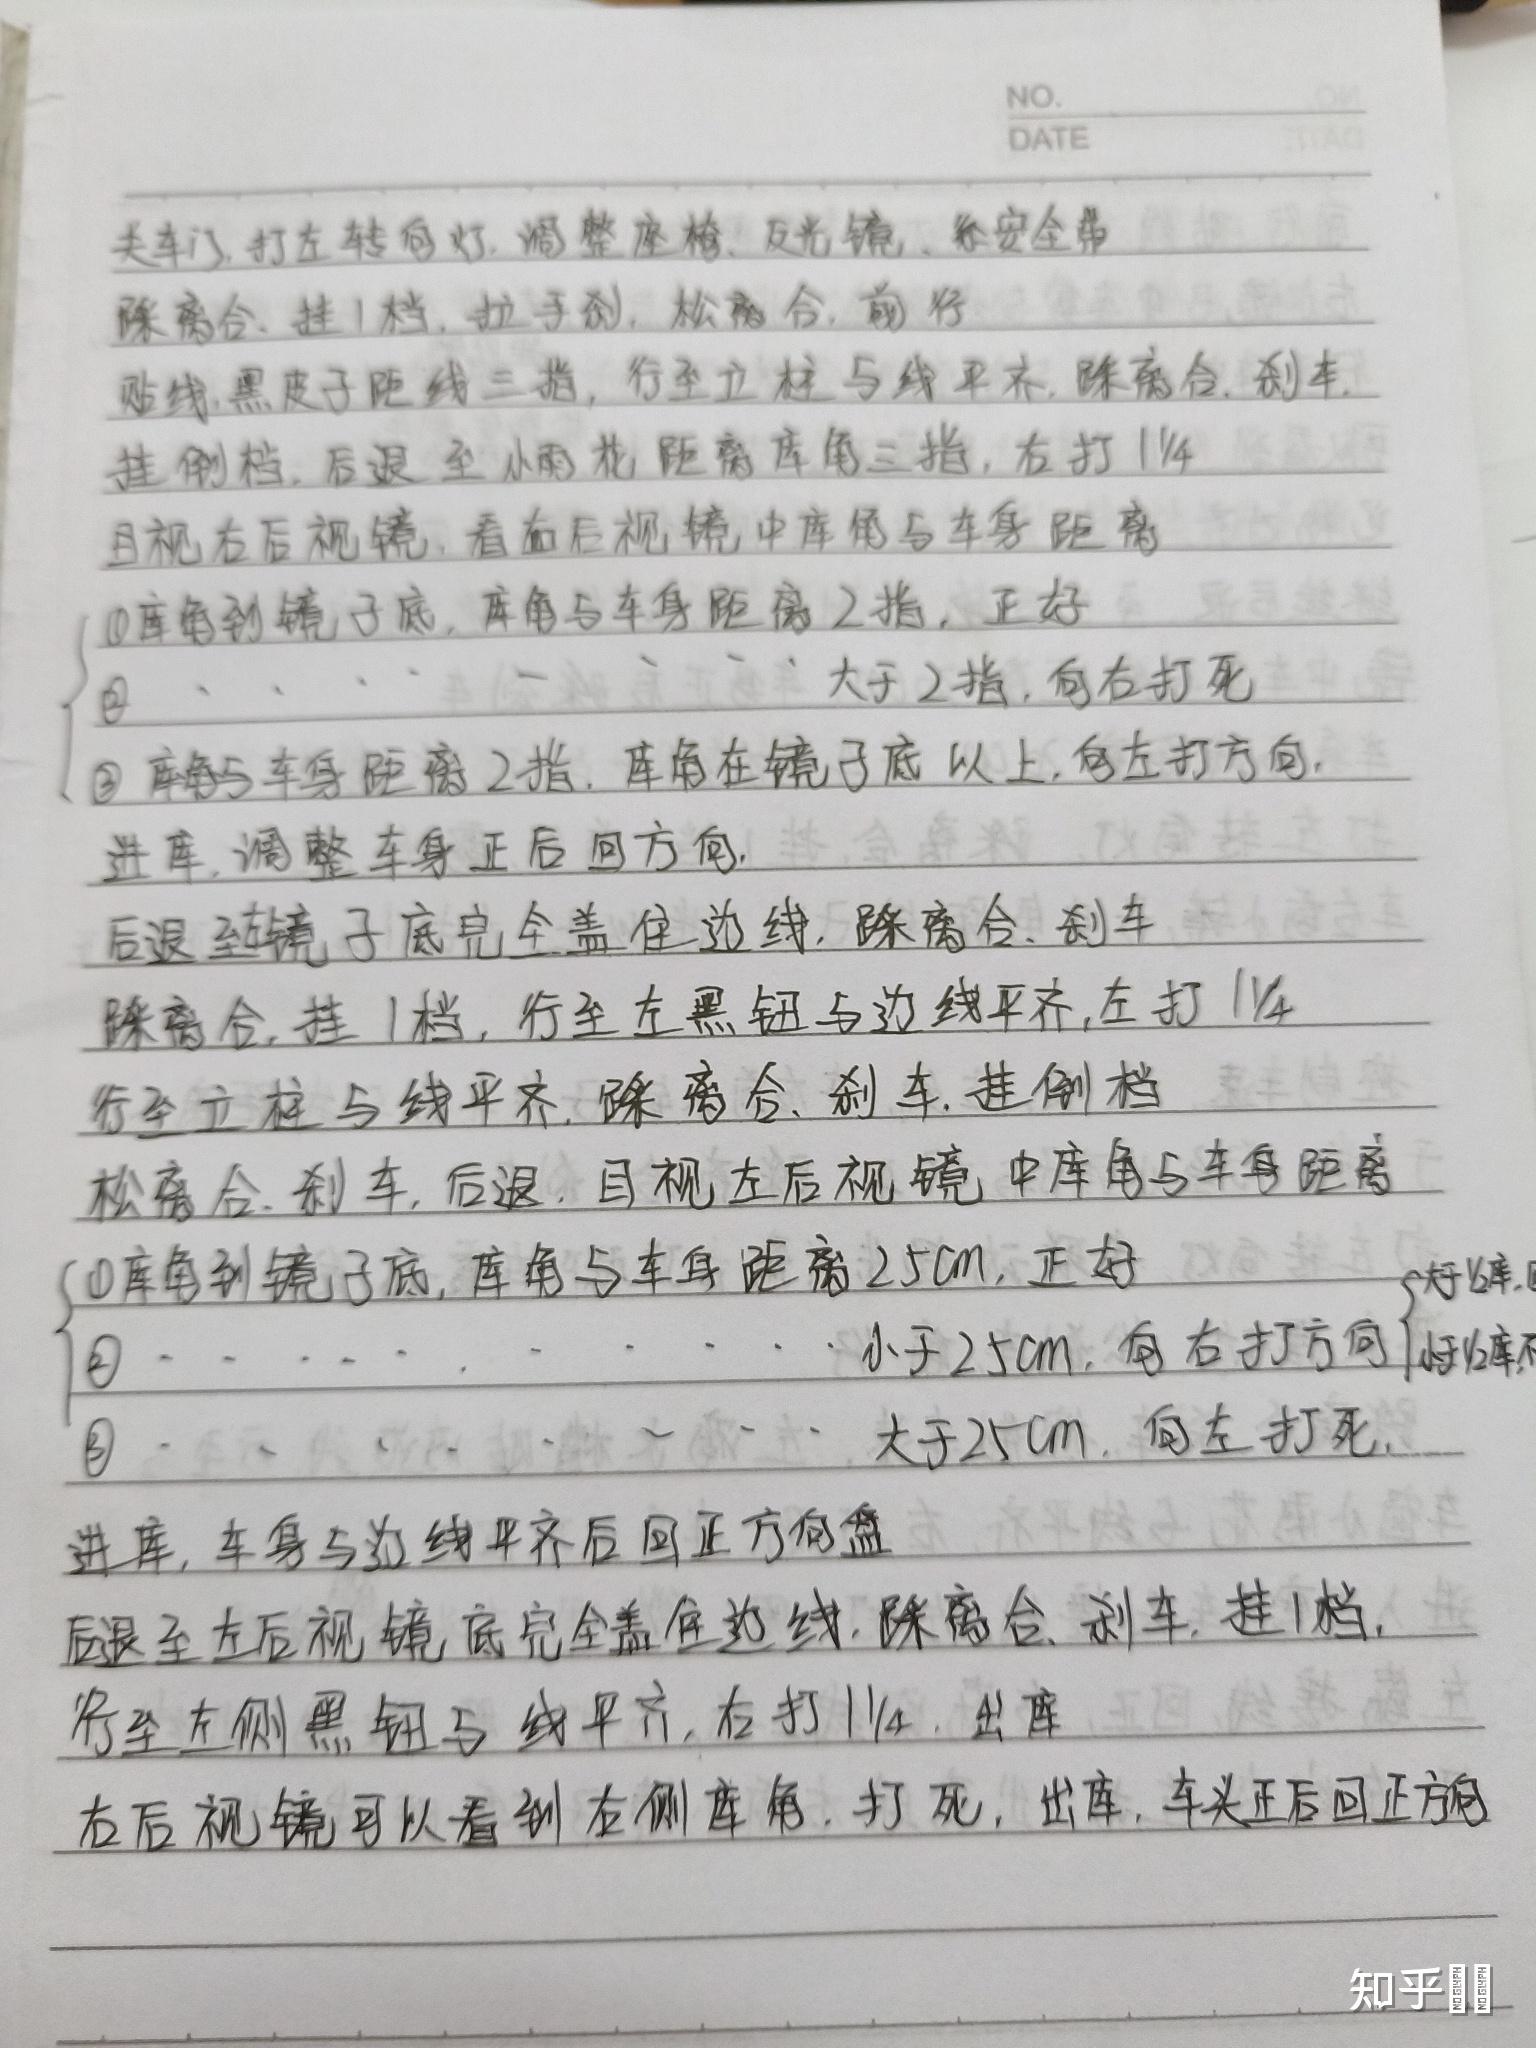 NO.
DATE
关车门、打左转向灯、调整座椅、反光镜、系安全带
踩离合、挂1档、拉手刹、松离合、前行
贴线,黑皮子距线三指,行至立柱与线平齐,踩离合、刹车,
挂倒档,后退至小雨花距离库角三指,右打1¼
目视右后视镜,看右后视镜中库角与车身距离
①库角到镜子底,库角与车身距离2指,正好
② 大于2指,向右打死
③库角与车身距离2指,库角在镜子底以上,向左打方向,
进库,调整车身正后回方向,
后退至左镜子底完全盖住边线,踩离合、刹车
踩离合,挂1档,行至左黑钮与边线平齐,左打1¼
行至立柱与线平齐,踩离合、刹车,挂倒档
松离合、刹车,后退,目视左后视镜中库角与车身距离
①库角到镜子底,库角与车身距离25cm,正好
② 小于25cm,向右打方向
大于½库,
小于½库,不
③ 大于25cm,向左打死,
进库,车身与边线平齐后回正方向盘
后退至左后视镜底完全盖住边线,踩离合、刹车,挂1档,
行至左侧黑钮与线平齐,右打1¼,出库
右后视镜可以看到右侧库角,打死,出库,车头正后回正方向
知乎